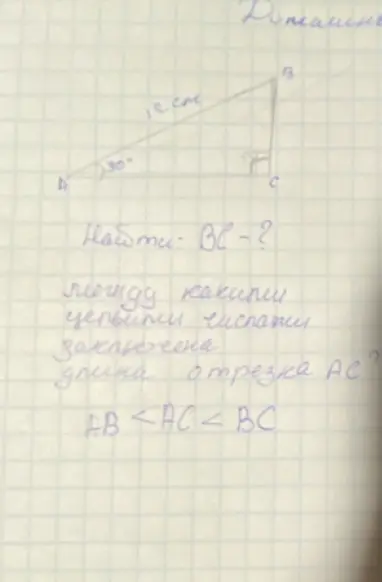 B
см
30°
A
C
Найти: BC - ?
между какими
целыми числами
заключена
длина отрезка AC?
AB < AC < BC